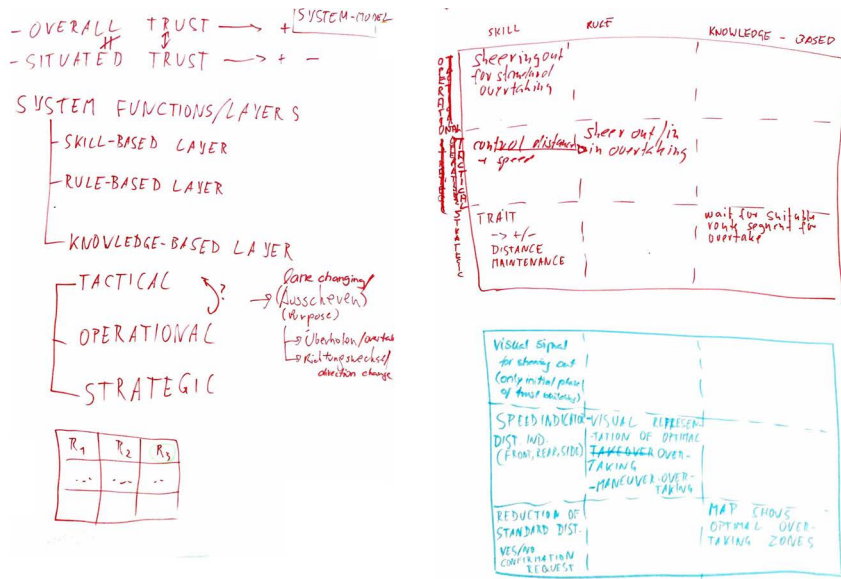 - OVERALL TRUST → + SYSTEM-MODEL
- SITUATED TRUST → + -
SYSTEM FUNCTIONS/LAYERS
SKILL-BASED LAYER
RULE-BASED LAYER
KNOWLEDGE-BASED LAYER
TACTICAL
OPERATIONAL
STRATEGIC
?
Lane changing/
→ (Ausscheren)
(Purpose)
→ Überholen/overtak
→ Richtungswechsel/
direction change
R1 R2 R3
... ... ..
SKILL RULE KNOWLEDGE-BASED
OPERATIONAL
TACTICAL
STRATEGIC
sheering out
for standard
overtaking
control distance
+ speed
sheer out/in
in overtaking
TRAIT
-> +/-
DISTANCE
MAINTENANCE
wait for suitable
route segment for
overtake
Visual signal
for sheering out
(only initial phase
of trust building)
SPEED INDICATOR
DIST. IND.
(FRONT, REAR, SIDE)
-VISUAL REPRESEN-
TATION OF OPTIMAL
TAKEOVER OVER-
TAKING
-MANEUVER-OVER-
TAKING
REDUCTION OF
STANDARD DIST.
YES/NO
CONFIRMATION
REQUEST
MAP SHOWS
OPTIMAL OVER-
TAKING ZONES